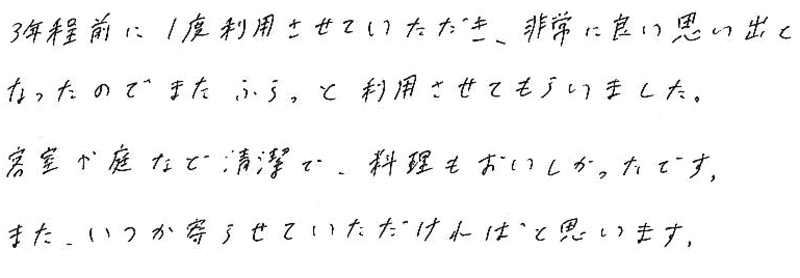 3年程前に1度利用させていただき、非常に良い思い出と
なったのでまたふらっと利用させてもらいました。
客室や庭などで清潔で、料理もおいしかったです。
また、いつか寄らせていただければと思います。